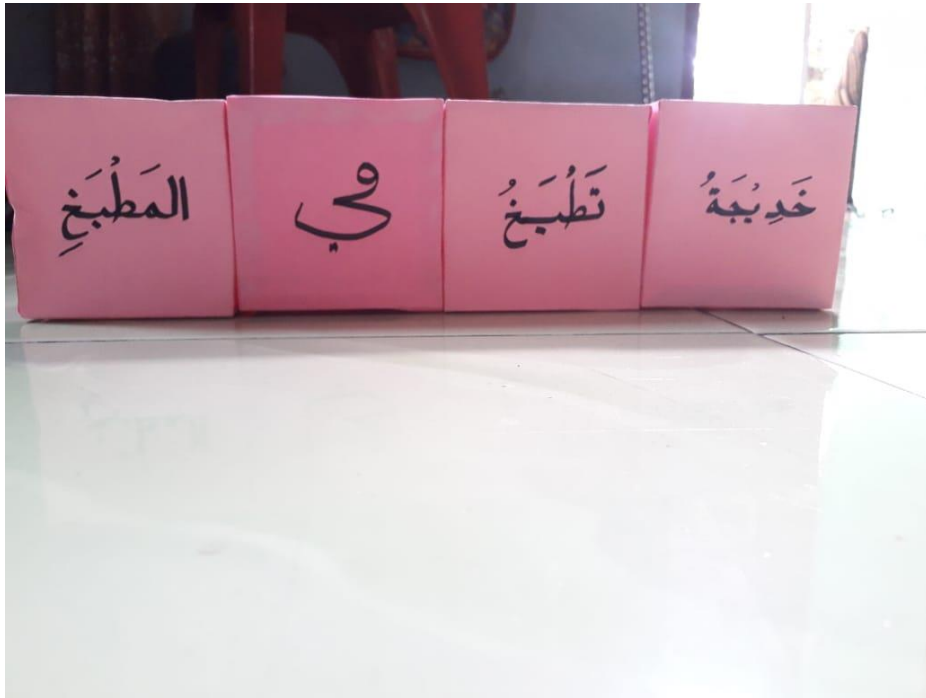 خَدِيْجَةُ تَطْبَخُ فِي المَطْبَخِ